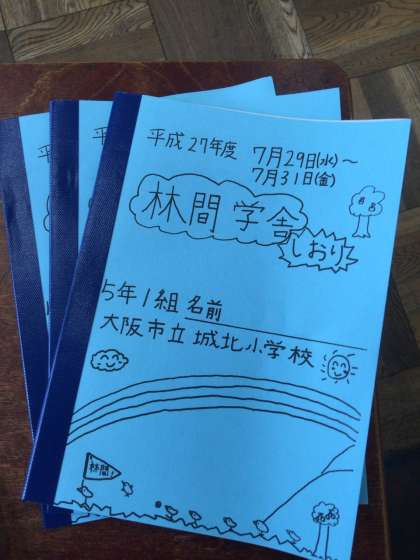 平成27年度 7月29日(水)～
7月31日(金)
林間学舎
しおり
5年1組 名前
大阪市立 城北小学校
林間
平
平